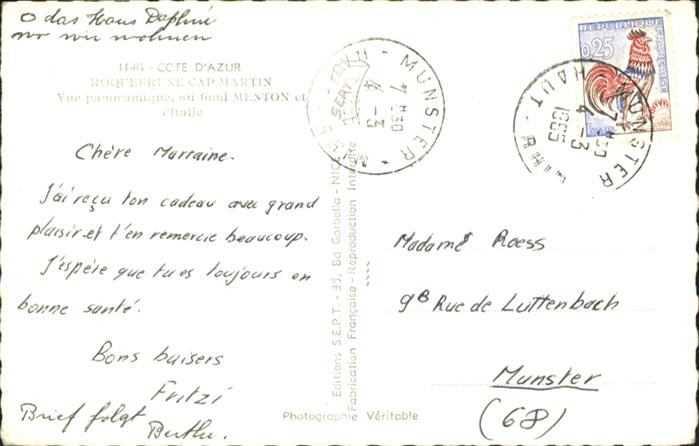 O das Haus Daphné
wo wir wohnen
11-04 - COTE D'AZUR
ROQUEBRUNE CAP MARTIN
Vue panoramique, au fond MENTON et
l'Italie
Chère Marraine.
J'ai reçu ton cadeau avec grand
plaisir et t'en remercie beaucoup.
J'espère que tu es toujours en
bonne santé.
Bons baisers
Fritzi
Brief folgt
Berthe.
Editions S.E.P.T. - 35, Bd Gorbella - NICE
Fabrication Française - Reproduction Interdite
Photographie Véritable
MUNSTER
7 H30
4 - 3
REPUBLIQUE FRANCAISE
0,25
MUNSTER
HAUT RHIN
7 H30
4 - 3
1965
Madame Roess
9B Rue de Luttenbach
Munster
(68)